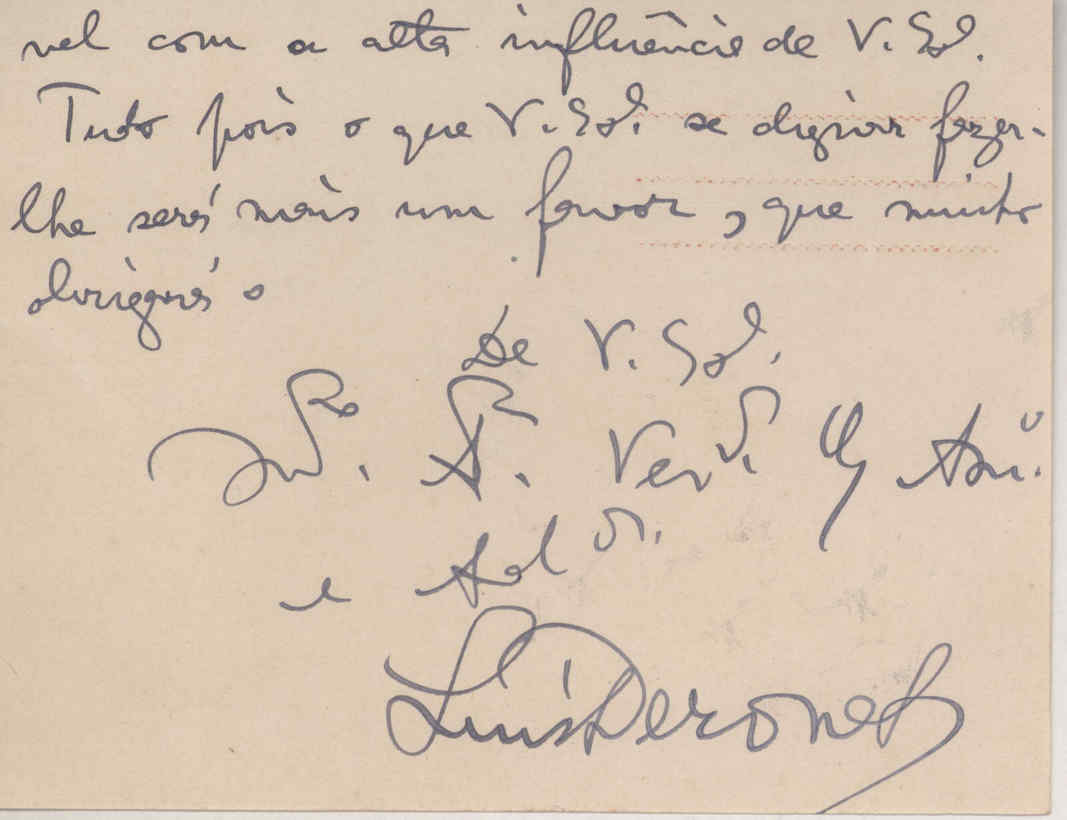 vel com a alta influência de V. Exª.
Tudo pois o que V. Exª. se dignar fazer-
lhe será mais um favor, que muito
obrigará o
De V. Exª.
Att. Verdr. Adm.
e
Luís Derouet